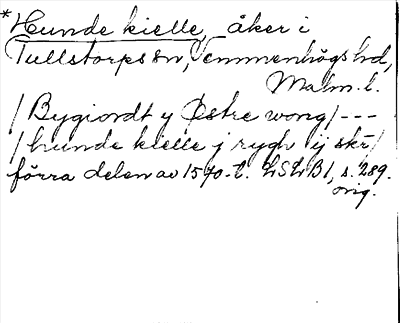 *Hunde kielle, åker i
Tullstorps sn, Vemmenhögs hd,
Malm. l.
/ Bygiordt y Østre wong / ---
/ hunde kielle j rygh ij skr /
förra delen av 1570-t. LSLB 1, s. 289.
orig.